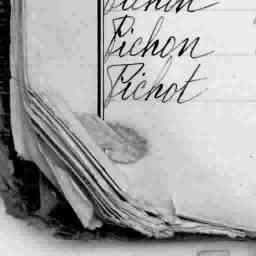 Pichon
Pichot